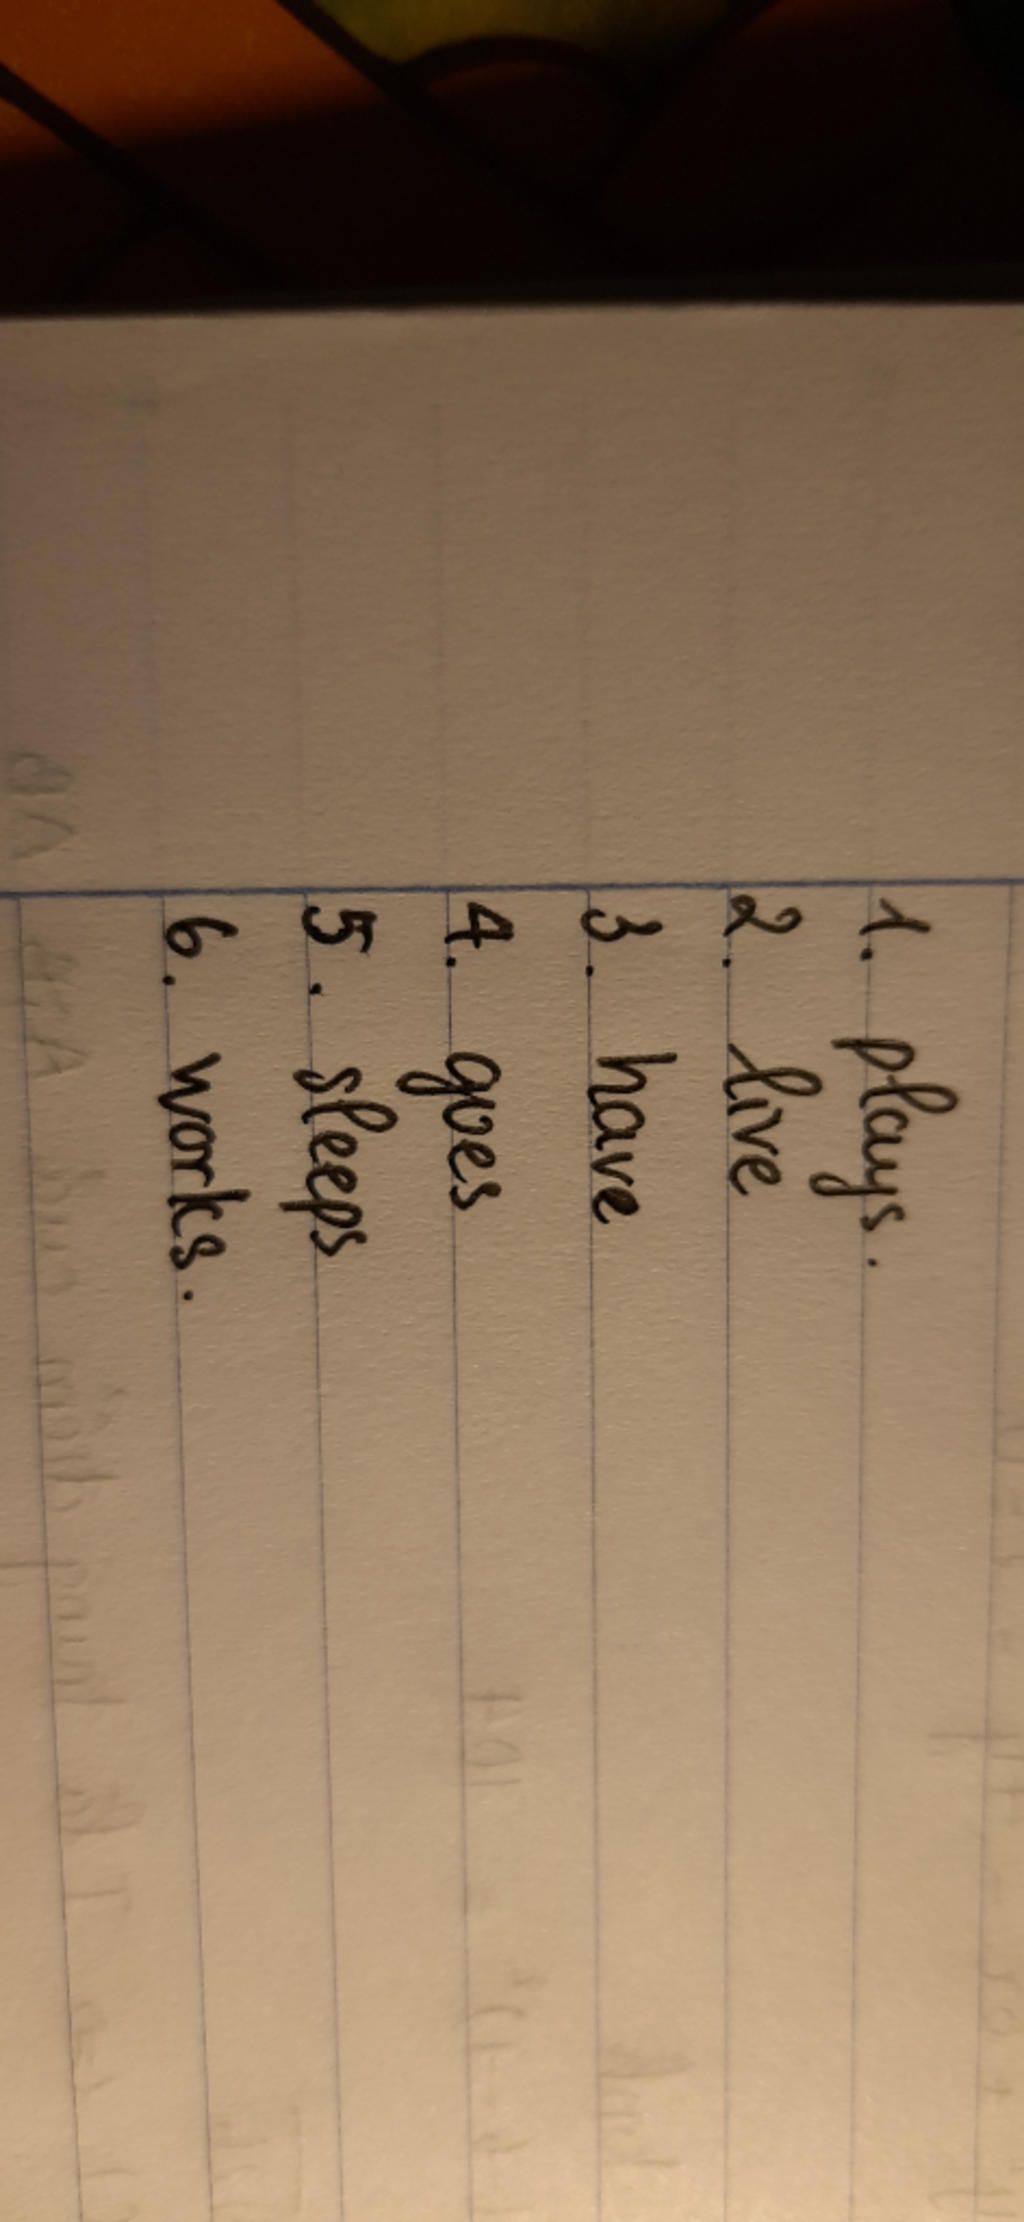 1. plays.
2. live
3. have
4. goes
5. sleeps
6. works.